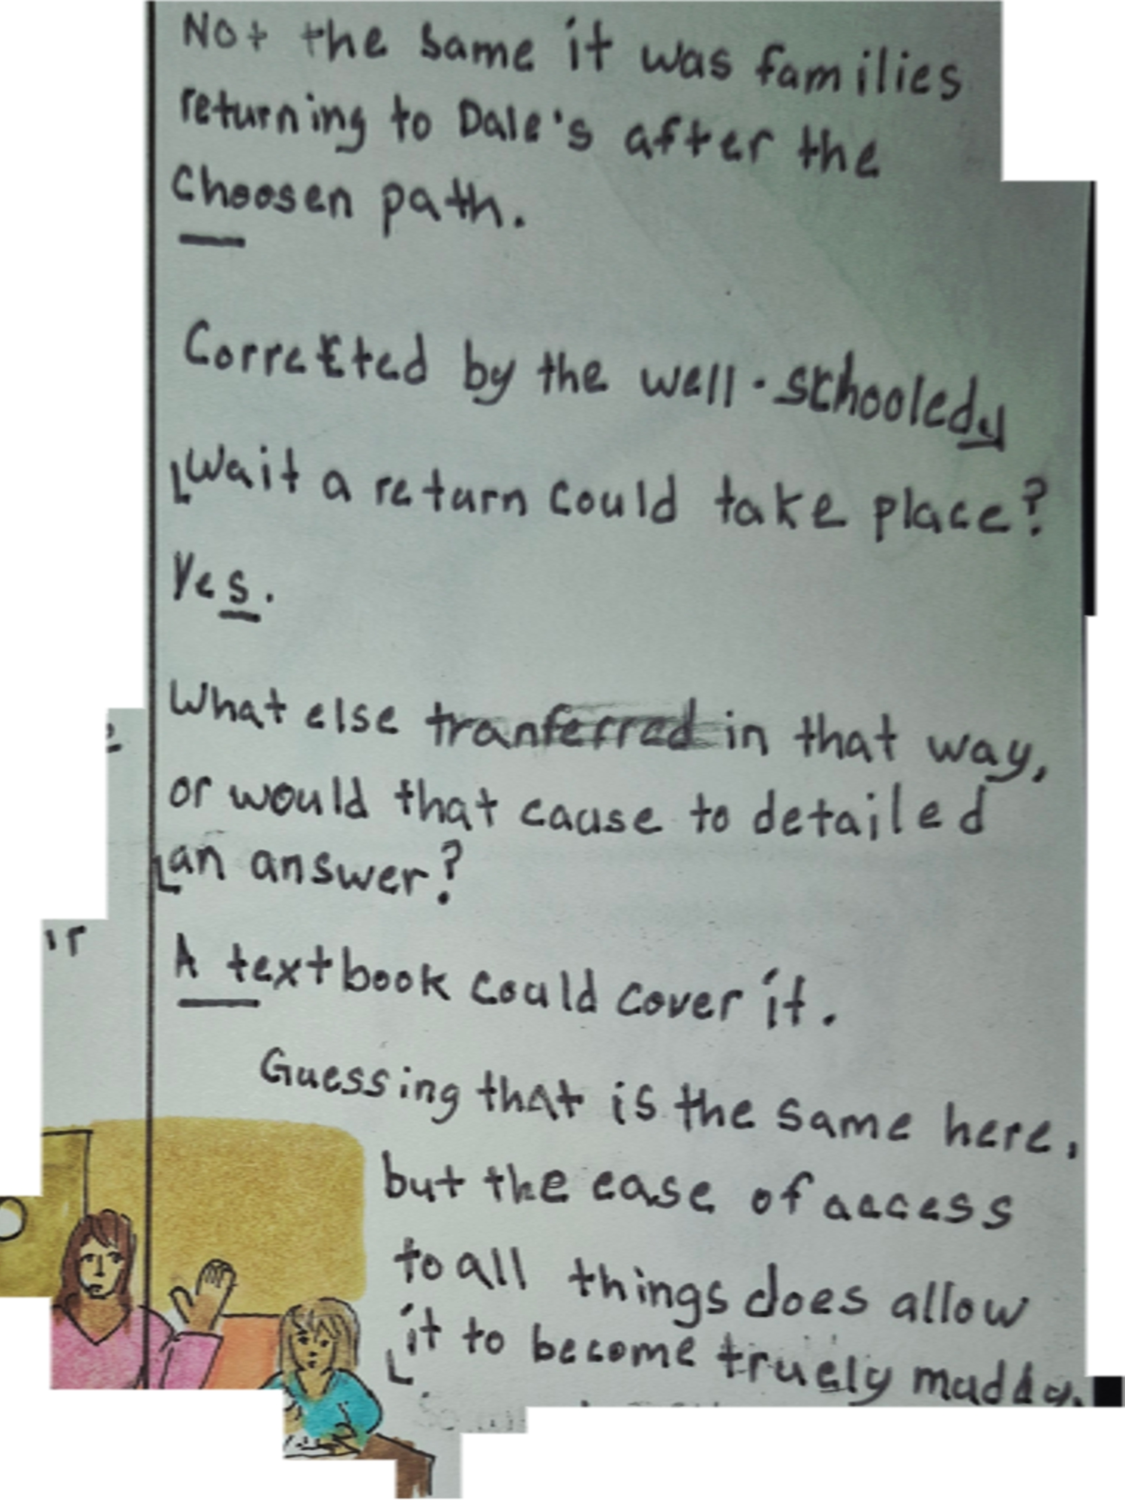 Not the same it was families
returning to Dale's after the
Choosen path.
Corrected by the well-schooledy
Wait a return could take place?
Yes.
What else tranferred in that way,
or would that cause to detailed
an answer?
A textbook could cover it.
Guessing that is the same here,
but the ease of access
to all things does allow
it to become truely muddy.